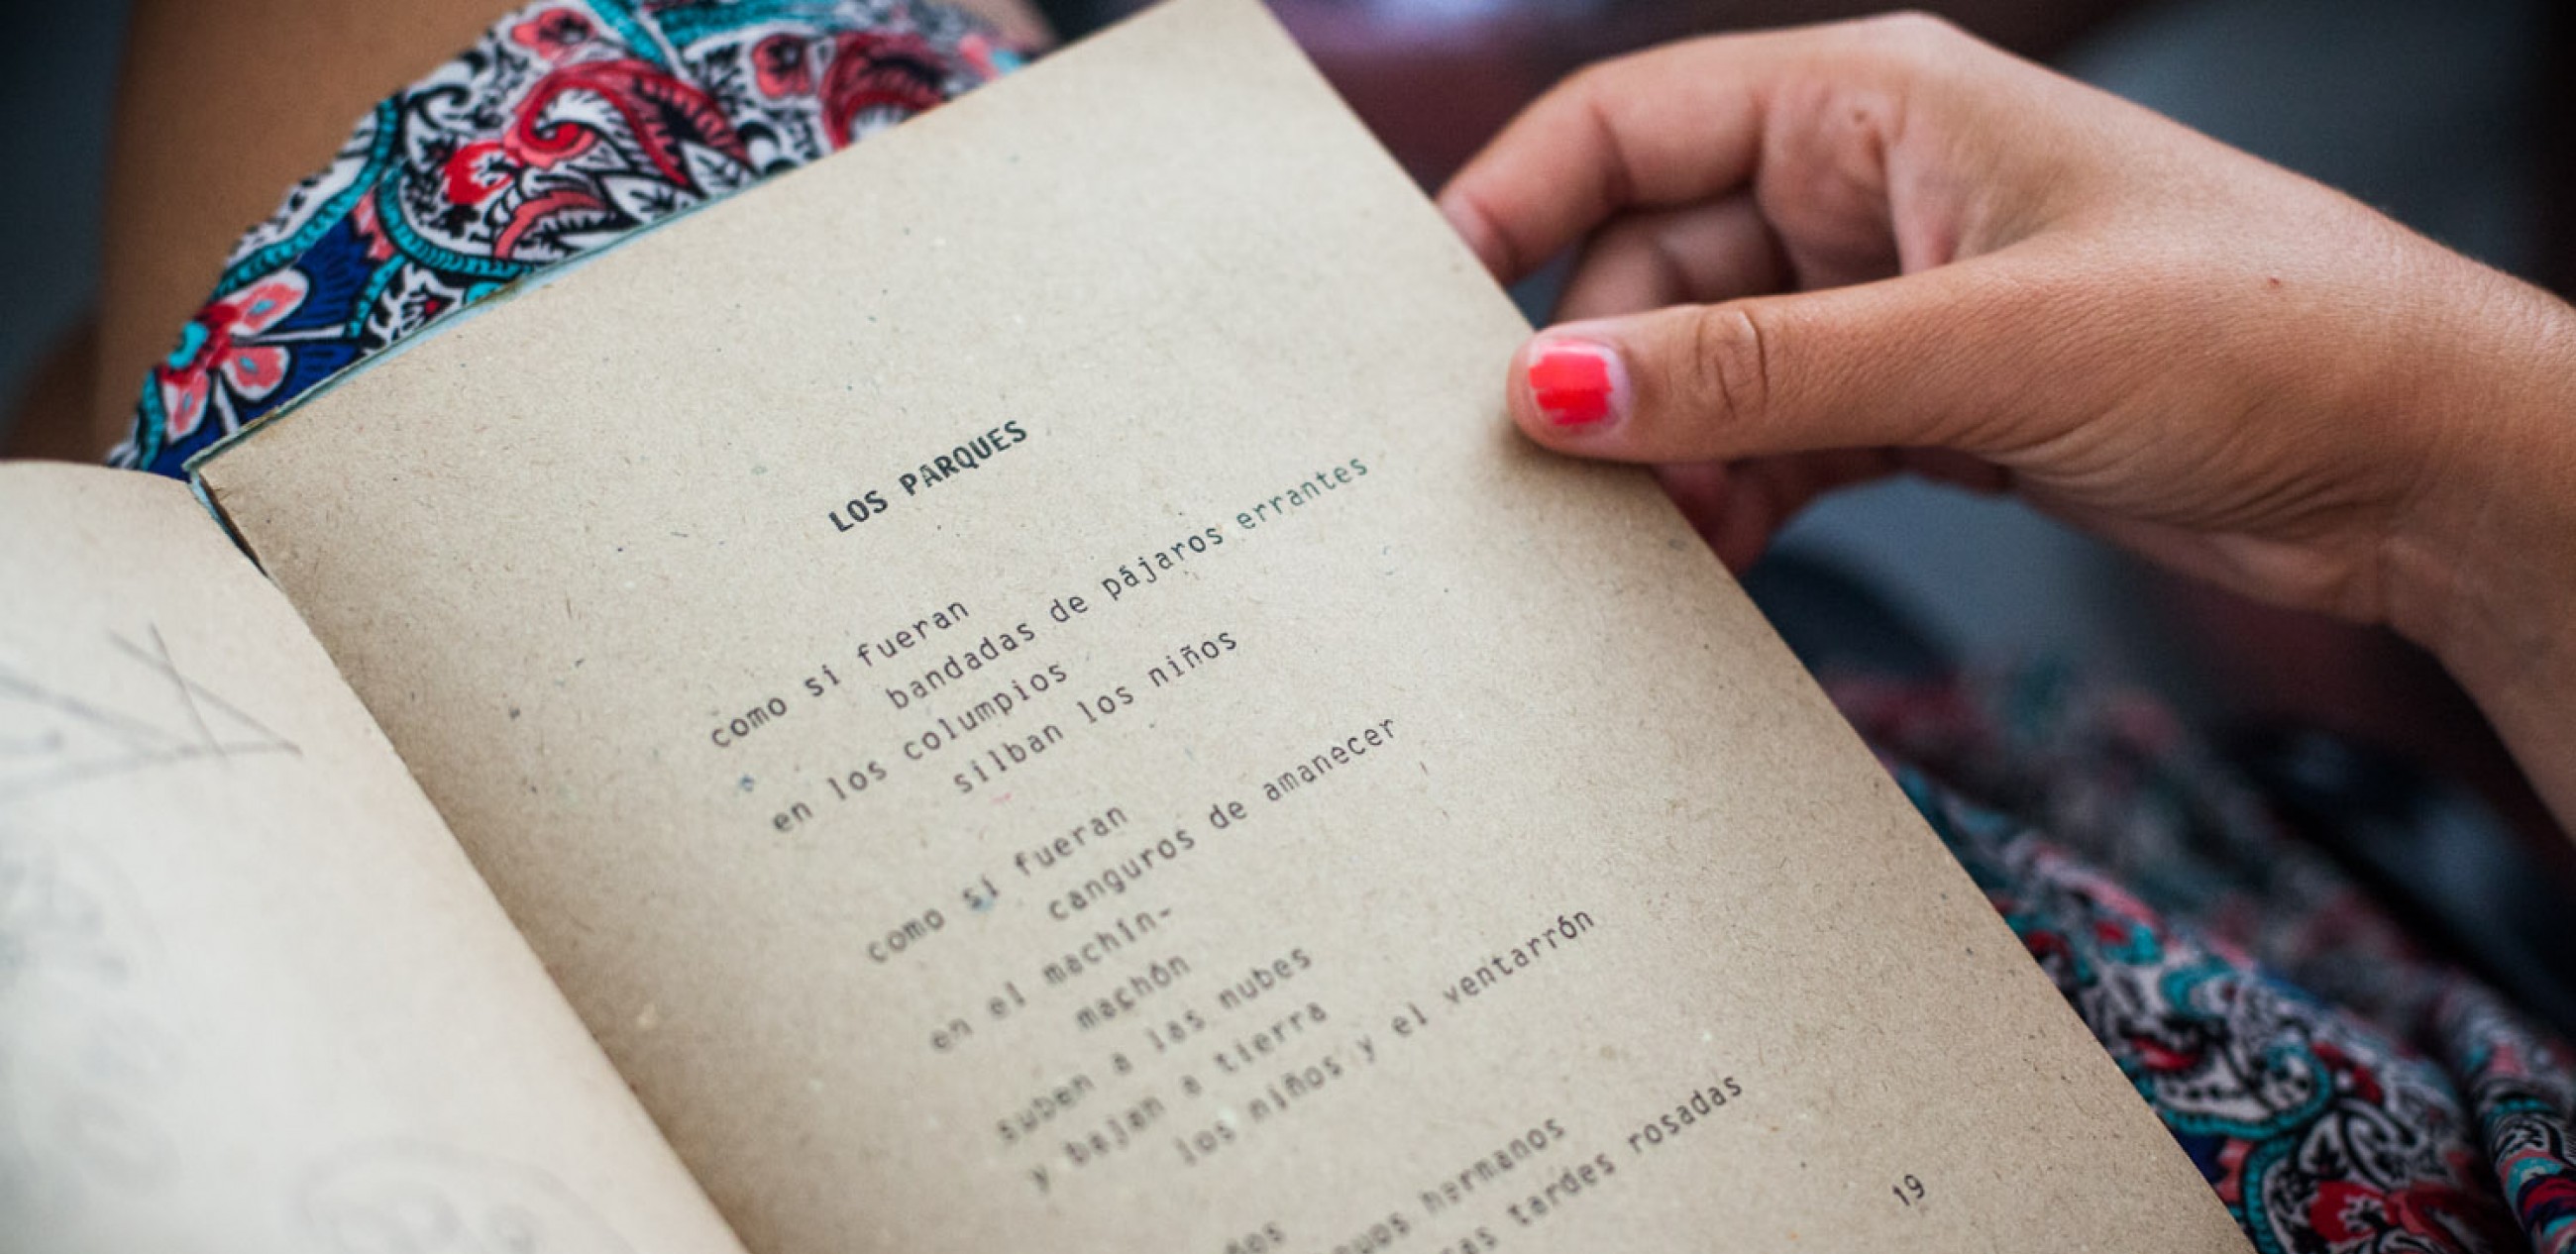 LOS PARQUES
como si fueran
bandadas de pájaros errantes
en los columpios
silban los niños
como si fueran
canguros de amanecer
en el machín-
machón
suben a las nubes
y bajan a tierra
los niños y el ventarrón
hermanos
tardes rosadas
19